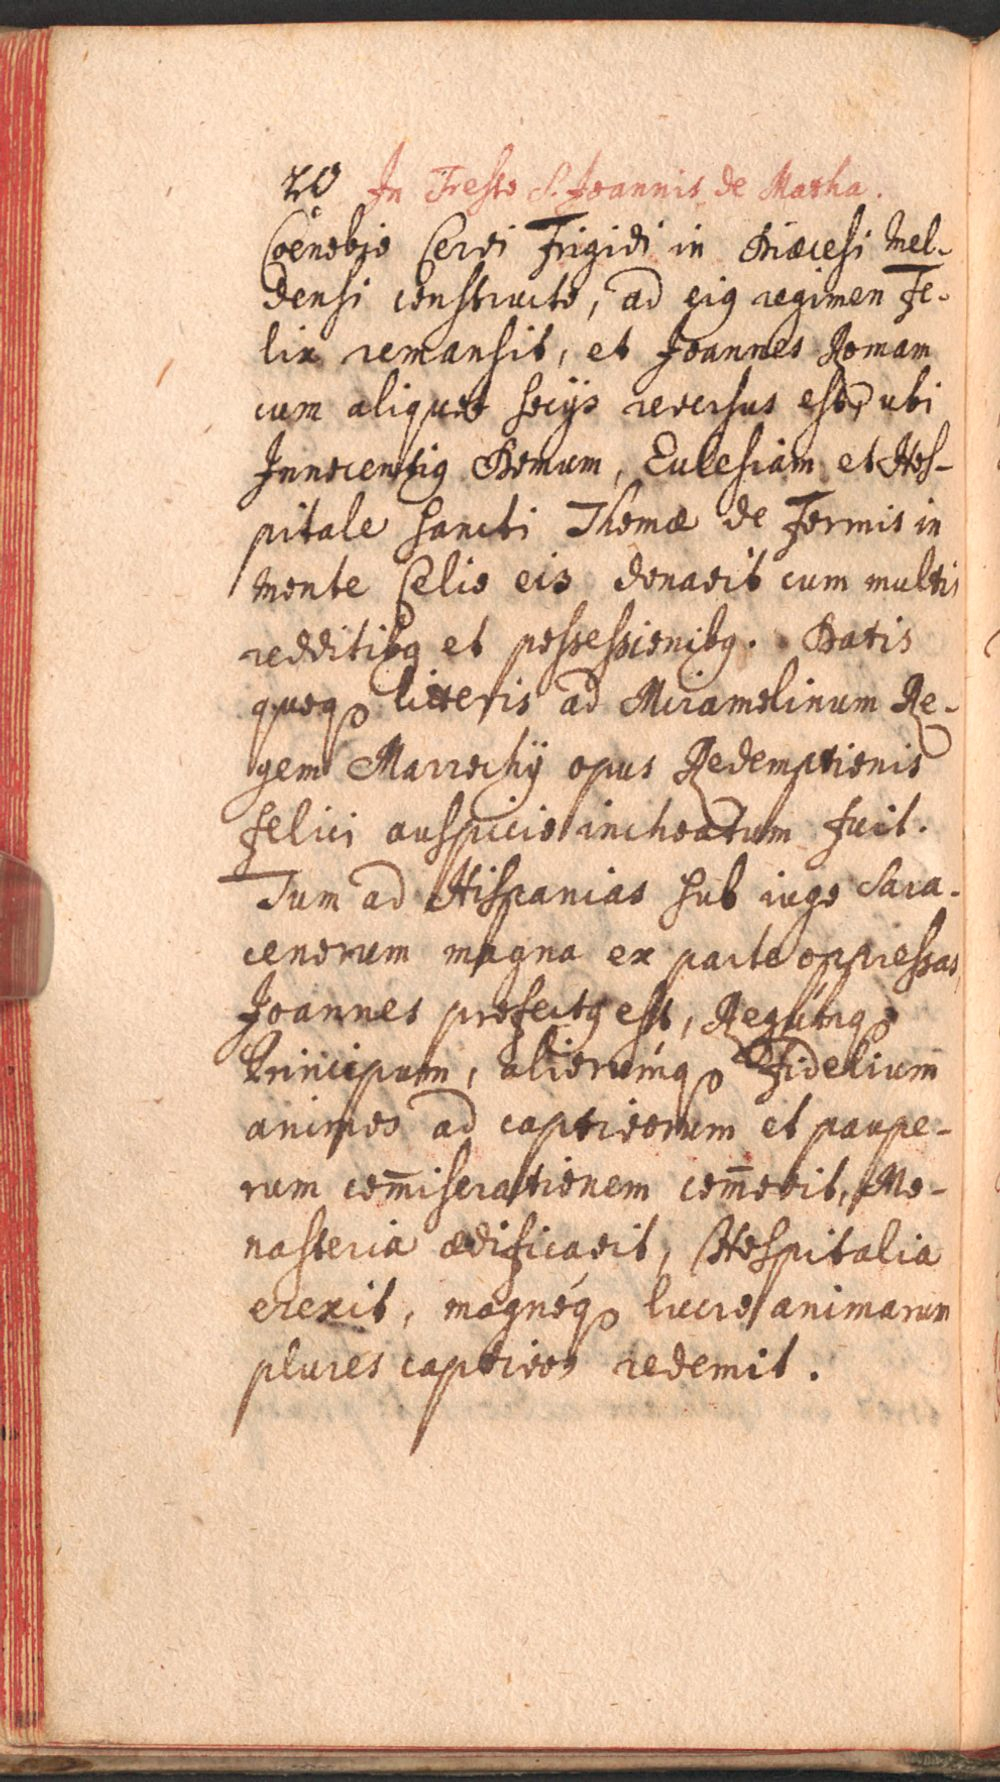 20 In Festo S. Joannis de Matha.
Coenobio Cervi Frigidi in Diœcesi Mel-
densi constructo, ad eiꝰ regimen Fe-
lix remansit, et Joannes Romam
cum aliquot socijs reversus est, ubi
Innocentiꝰ Domum, Ecclesiam et Hos-
pitale Sancti Thomæ de Formis in
Monte Celio eis donavit cum multis
redditibꝰ et possessionibꝰ. Datis
quoqꝫ litteris ad Miramolinum Re-
gem Marrochij opus Redemptionis
felici auspicio inchoatum fuit.
Tum ad Hispanias sub iugo Sara-
cenorum magna ex parte oppressas
Joannes profectꝰ est, Regúmqꝫ
Principum, aliorúmqꝫ Fidelium
animos ad captivorum et paupe-
rum com̄iserationem com̄ovit, Mo-
nasteria ædificavit, Hospitalia
erexit, magnóqꝫ lucro animarum
plures captivos redemit.